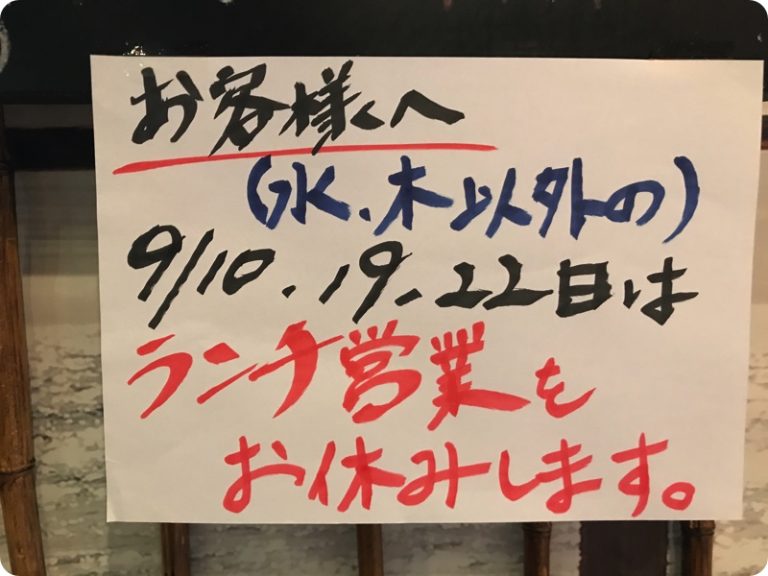 お客様へ
(水、木以外の)
9/10、19、22日は
ランチ営業を
お休みします。